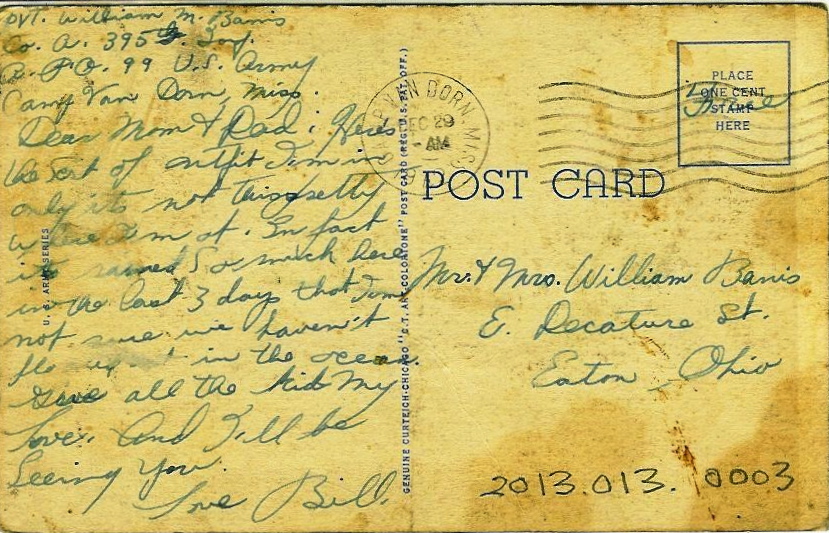 Pvt. William M. Banis
Co. A. 395th Inf.
A.P.O. 99 U.S. Army
Camp Van Dorn, Miss.
Dear Mom & Dad: Heres
the sort of outfit I'm in
only its not this pretty
where I'm at. In fact
its rained so much here
in the last 3 days that I'm
not sure we haven't
in the ocean.
Give all the kids my
love. And I'll be
Seeing You.
Love Bill.
U. S. ARMY SERIES
GENUINE CURTEICH-CHICAGO "C.T. ART-COLORTONE" POST CARD (REG. U.S. PAT. OFF.)
VAN DORN, MISS
DEC 29
AM
PLACE
ONE CENT
STAMP
HERE
Free
POST CARD
Mr. & Mrs. William Banis
E. Decature St.
Eaton, Ohio
2013.013.0003